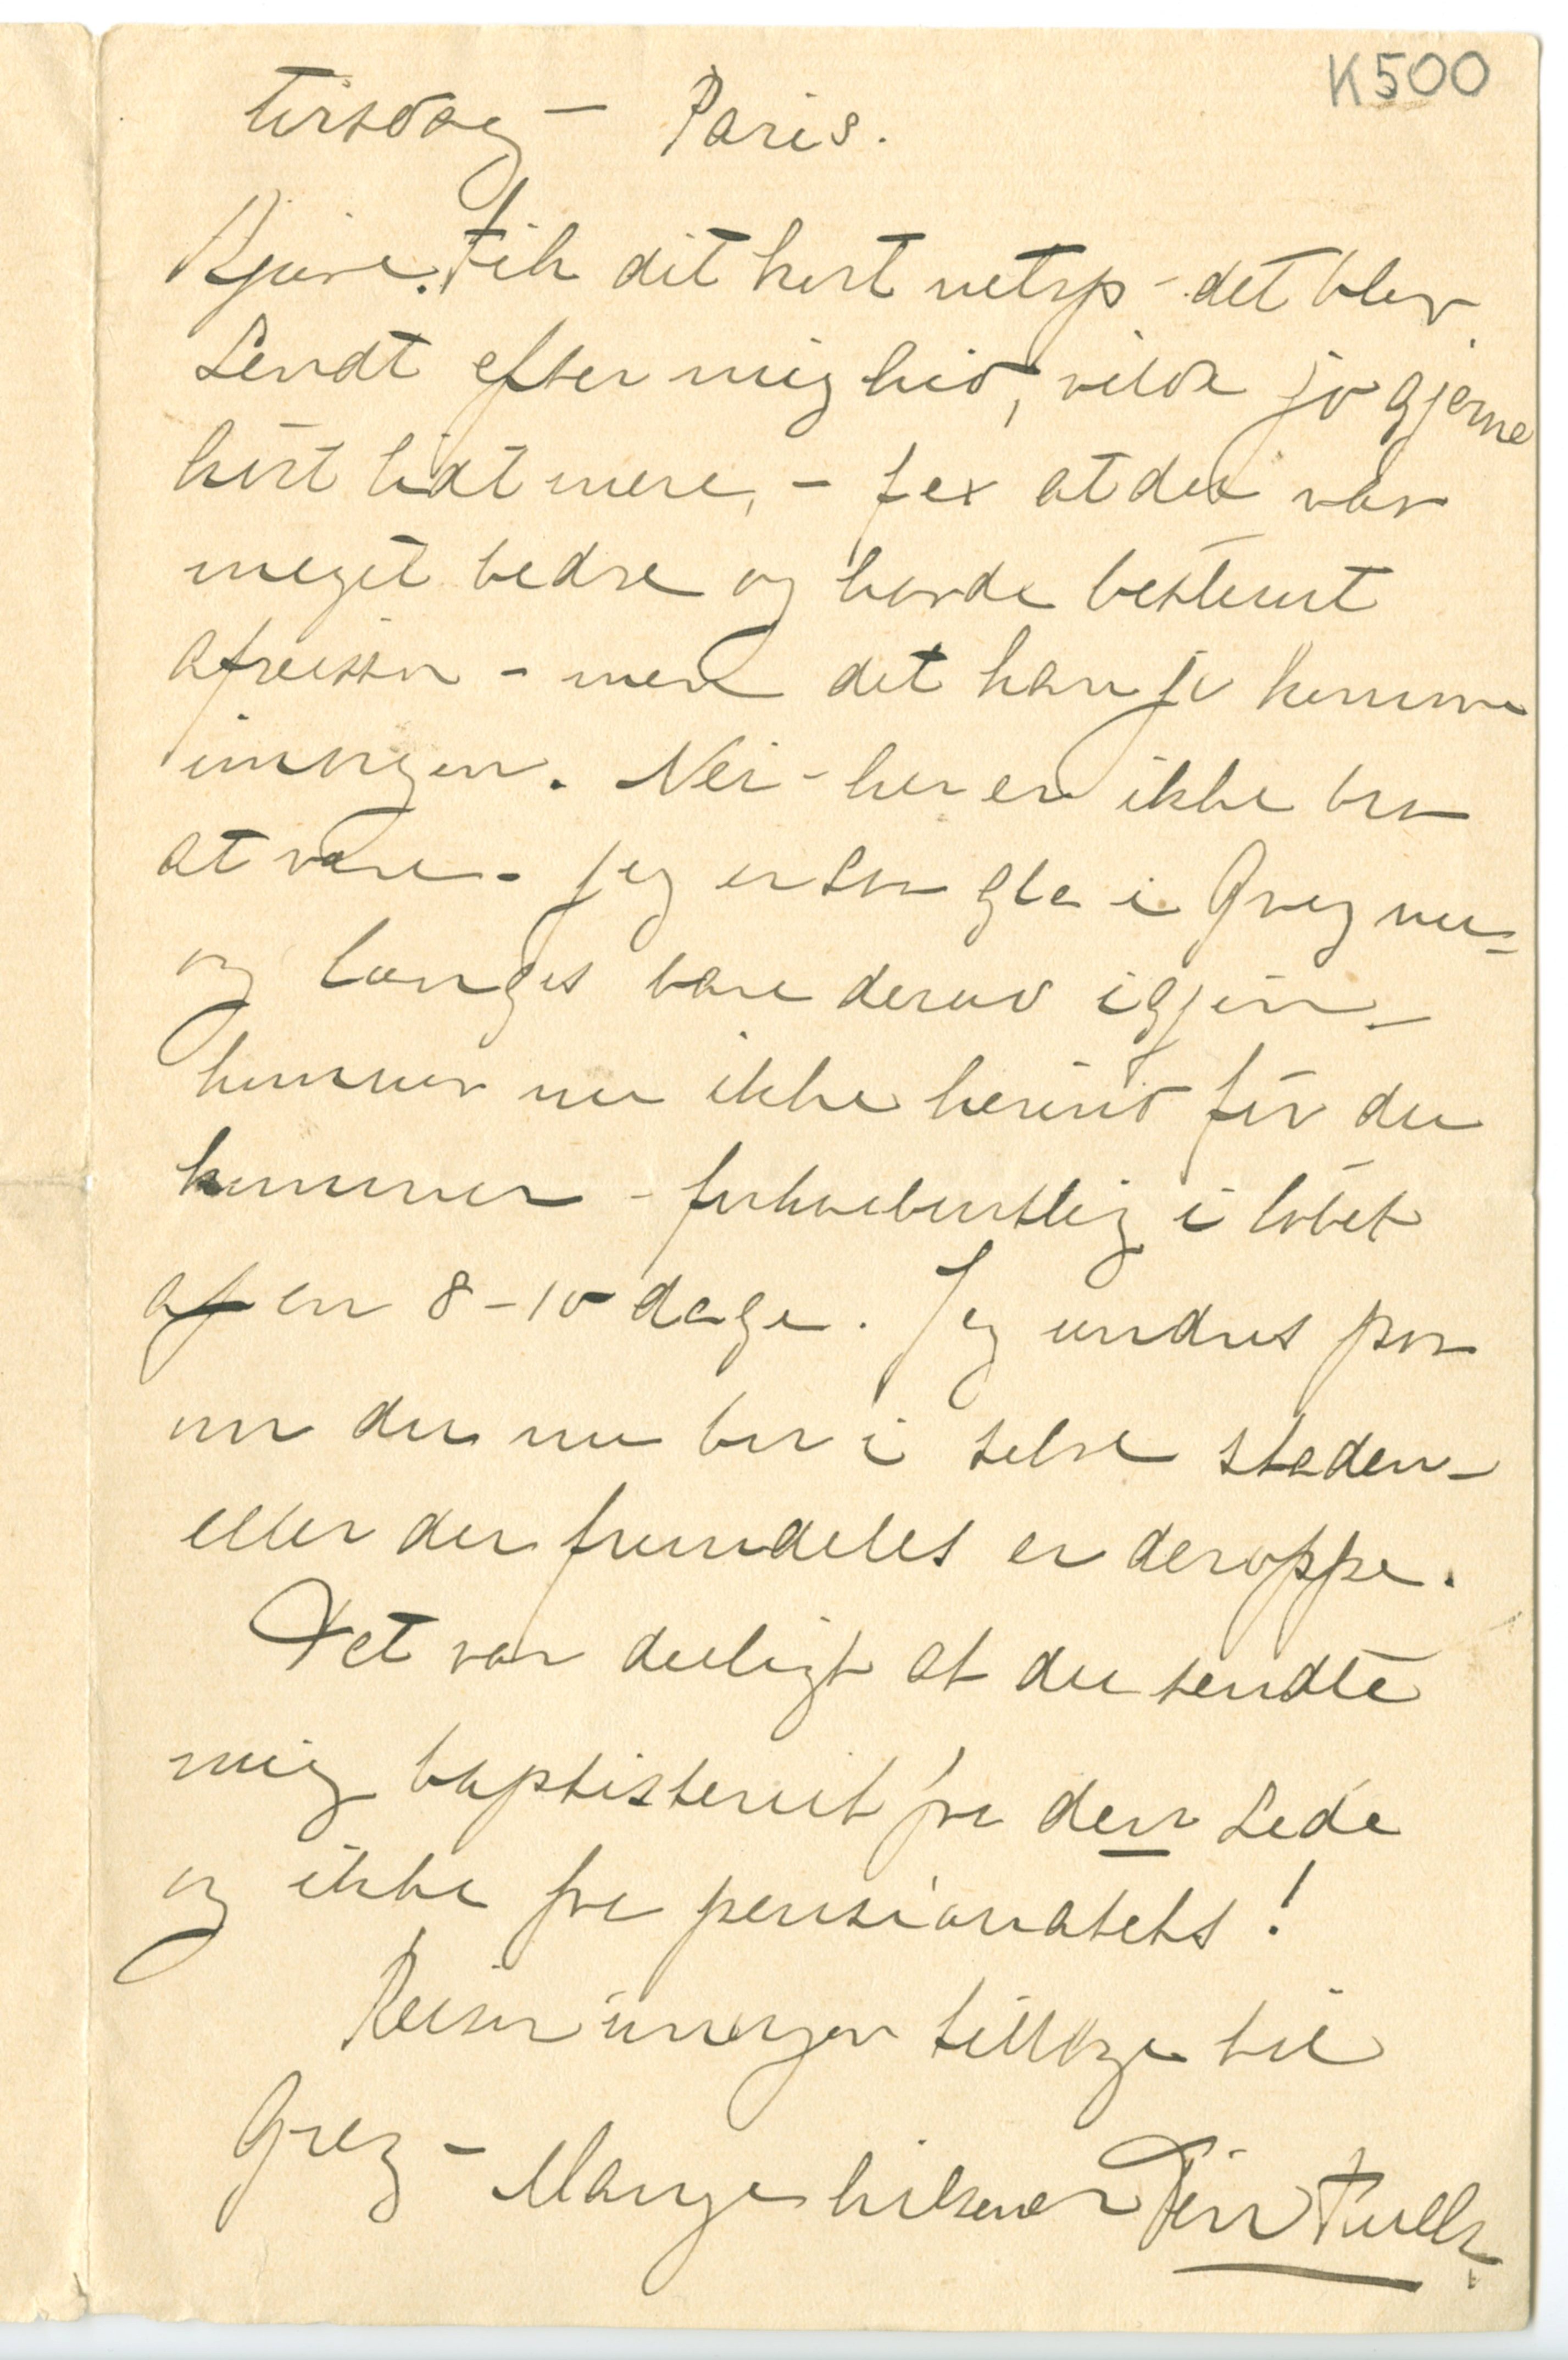 K500
tirsdag – Paris.
Kjære. Fik dit kort netop – det blev
sendt efter mig hid, vilde jo gjerne
hørt lidt mere, – f ex at du var
meget bedre og havde bestemt
afreisen – men det kan jo komme
imorgen. Nei – her er ikke bra
at være – jeg er saa gla i Grez nu –
og længes bare derud igjen –
kommer nu ikke herind før du
kommer – forhaabentlig i løbet
af en 8–10 dage. Jeg undres paa
om du nu bor i selve staden –
eller du fremdeles er deroppe.
Det var deiligt at du sendte
mig baptisteriet fra den side
og ikke fra pensionatets!
Reiser imorgen tilbage til
Grez – Mange hilsener Din Tulla